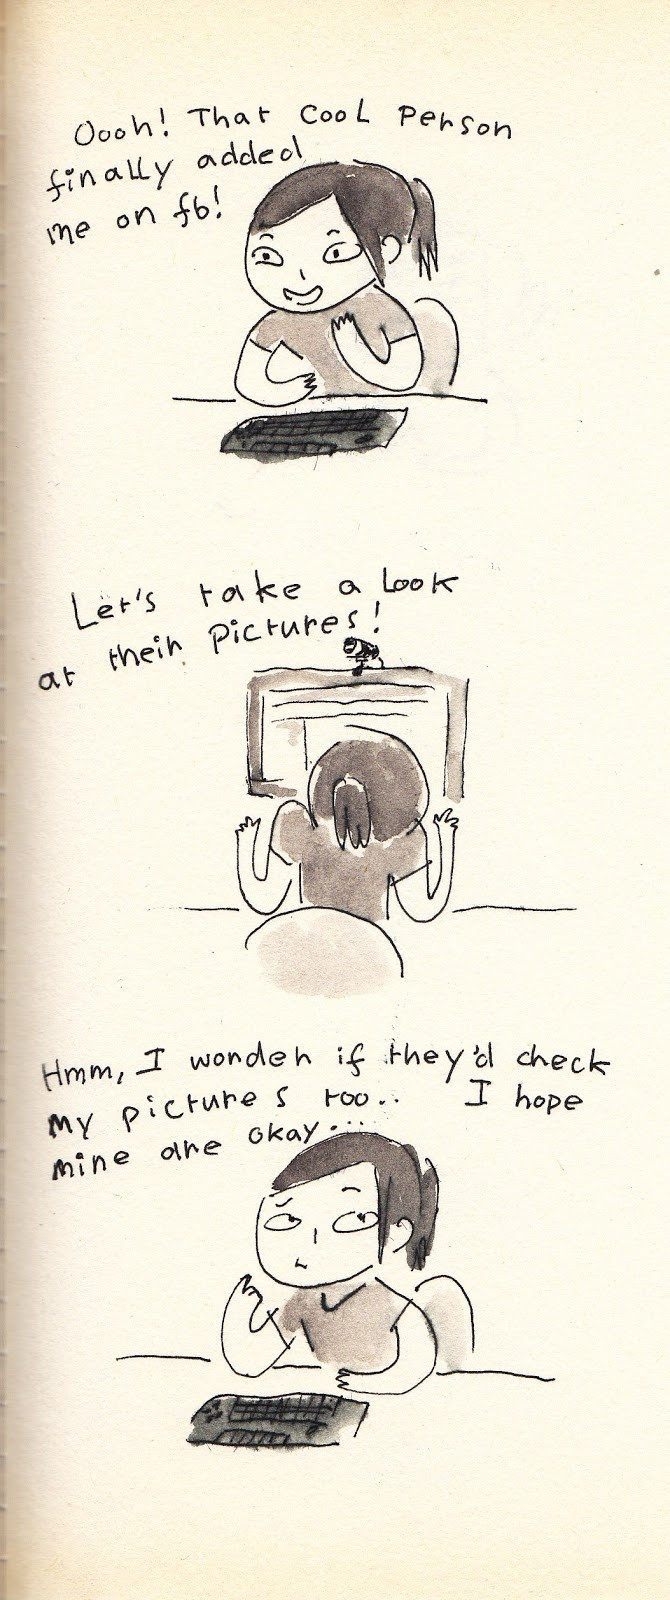 Oooh! That cool person
finally added
me on fb!
Let's take a look
at their pictures!
Hmm, I wonder if they'd check
my pictures too.. I hope
mine are okay...